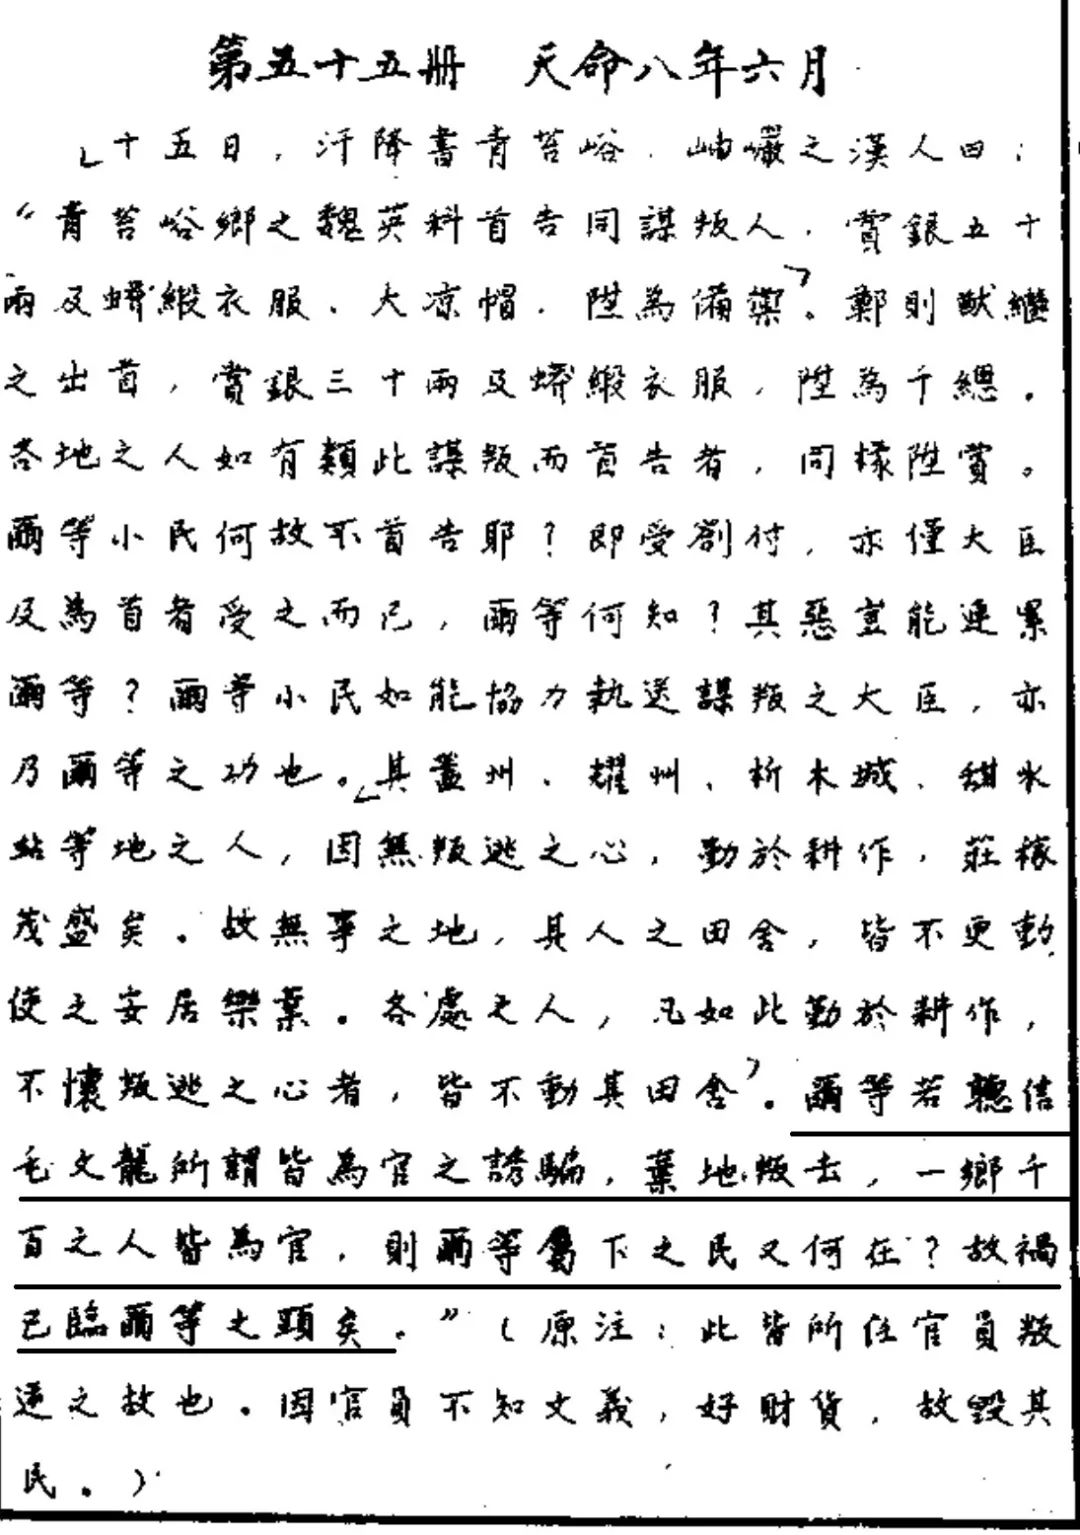 第五十五册　天命八年六月
十五日，汗降書青苔峪、岫巖之漢人曰：
“青苔峪鄉之魏英科首告同謀叛人，賞銀五十
兩及蟒緞衣服、大凉帽，陞為備禦。鄭則猷繼
之出首，賞銀三十兩及蟒緞衣服，陞為千總。
各地之人如有類此謀叛而首告者，同樣陞賞。
爾等小民何故不首告耶？即受劄付，亦僅大臣
及為首者受之而已，爾等何知？其惡豈能連累
爾等？爾等小民如能協力執送謀叛之大臣，亦
乃爾等之功也。其蓋州、耀州、析木城、甜水
站等地之人，因無叛逃之心，勤於耕作，莊稼
茂盛矣。故無事之地，其人之田舍，皆不更動，
使之安居樂業。各處之人，凡如此勤於耕作，
不懷叛逃之心者，皆不動其田舍。爾等若聽信
毛文龍所謂皆為官之誘騙，棄地叛去，一鄉千
百之人皆為官，則爾等屬下之民又何在？故禍
已臨爾等之頭矣。”（原注：此皆所任官員叛
逆之故也。因官員不知文義，好財貨，故毀其
民。）